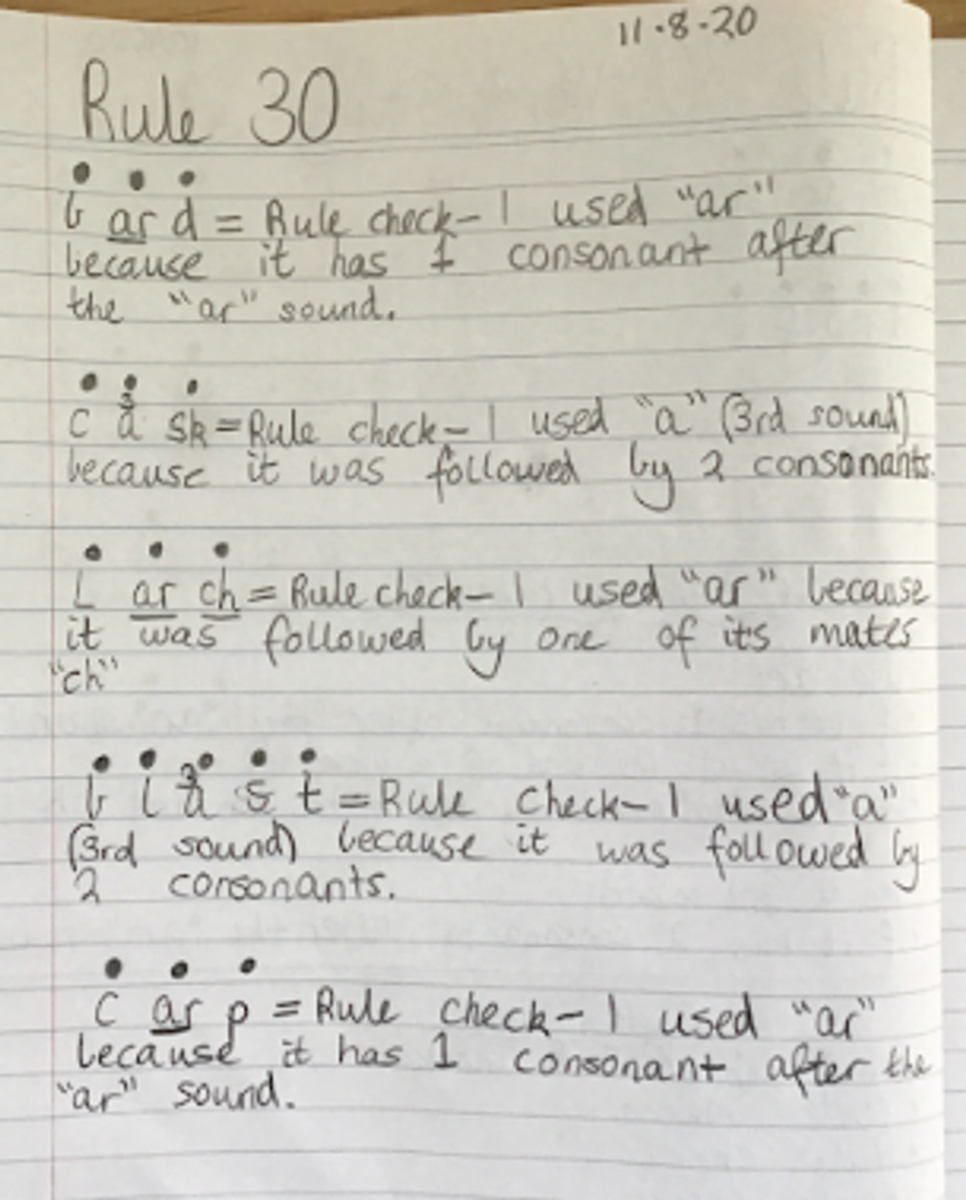 11.8.20
Rule 30
b ar d = Rule check- I used "ar"
because it has 1 consonant after
the "ar" sound.
c a³ sk = Rule check- I used "a" (3rd sound)
because it was followed by 2 consonants.
L ar ch = Rule check- I used "ar" because
it was followed by one of its mates
"ch"
b l a³ s t = Rule check- I used "a"
(3rd sound) because it was followed by
2 consonants.
c ar p = Rule check- I used "ar"
because it has 1 consonant after the
"ar" sound.